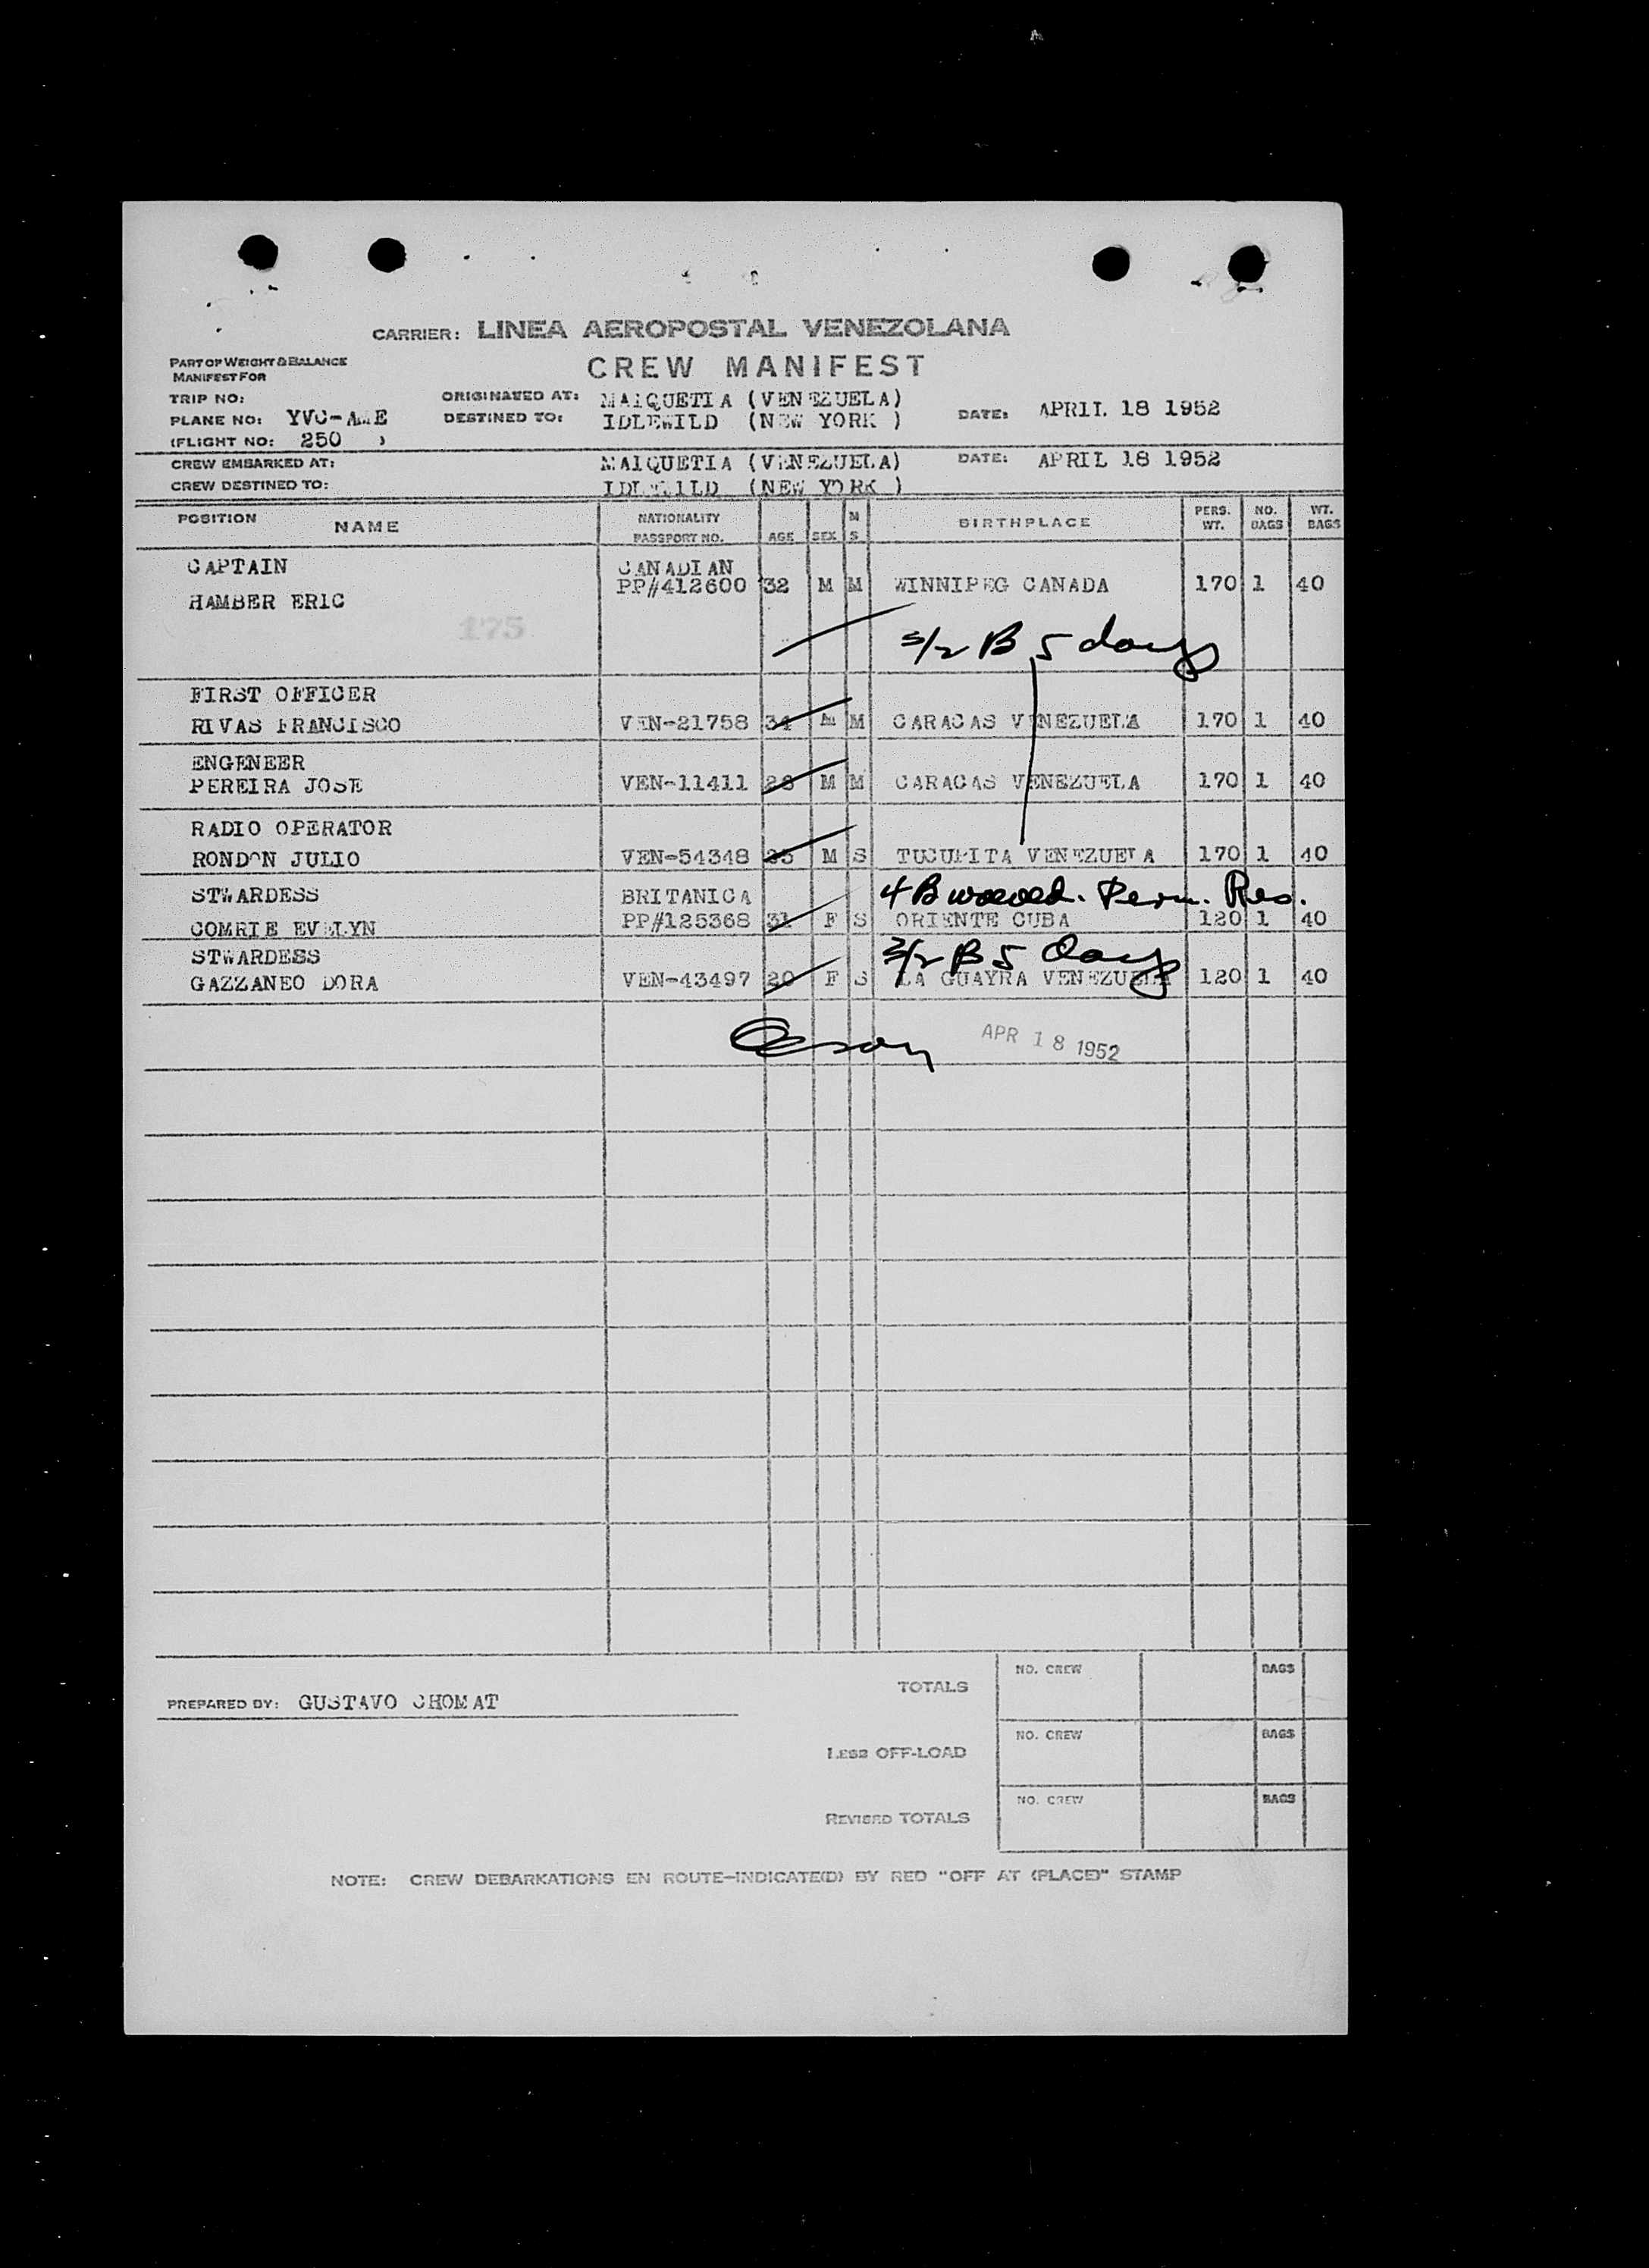 CARRIER: LINEA AEROPOSTAL VENEZOLANA
PART OF WEIGHT & BALANCE
MANIFEST FOR
CREW MANIFEST
TRIP NO:
ORIGINATED AT: MAIQUETIA (VENEZUELA)
PLANE NO:
DESTINED TO: IDLEWILD (NEW YORK )
DATE: APRIL 18 1952
(FLIGHT NO: 250 )
CREW EMBARKED AT: MAIQUETIA (VENEZUELA) DATE: APRIL 18 1952
CREW DESTINED TO: IDLEWILD (NEW YORK )
POSITION NAME NATIONALITY PASSPORT NO. AGE SEX M S BIRTHPLACE PERS. WT. NO. BAGS WT. BAGS
CAPTAIN CANADIAN
PP#412600 32 M M WINNIPEG CANADA 170 1 40
HAMBER ERIC
175
3/2 B 5 days
FIRST OFFICER
RIVAS FRANCISCO VEN-21758 34 M M CARACAS VENEZUELA 170 1 40
ENGENEER
PEREIRA JOSE VEN-11411 28 M M CARACAS VENEZUELA 170 1 40
RADIO OPERATOR
RONDON JULIO VEN-54348 M S TUCUPITA VENEZUELA 170 1 40
STWARDESS BRITANICA 4 B waived. Perm. Res.
COMRIE EVELYN PP#125368 31 F S ORIENTE CUBA 120 1 40
STWARDESS 3/2 B 5 Days
GAZZANEO DORA VEN-43497 20 F S LA GUAYRA VENEZUELA 120 1 40
APR 18 1952
NO. CREW BAGS
TOTALS
PREPARED BY: GUSTAVO CHOMAT
NO. CREW BAGS
LESS OFF-LOAD
NO. CREW BAGS
REVISED TOTALS
NOTE: CREW DEBARKATIONS EN ROUTE-INDICATE(D) BY RED "OFF AT (PLACE)" STAMP